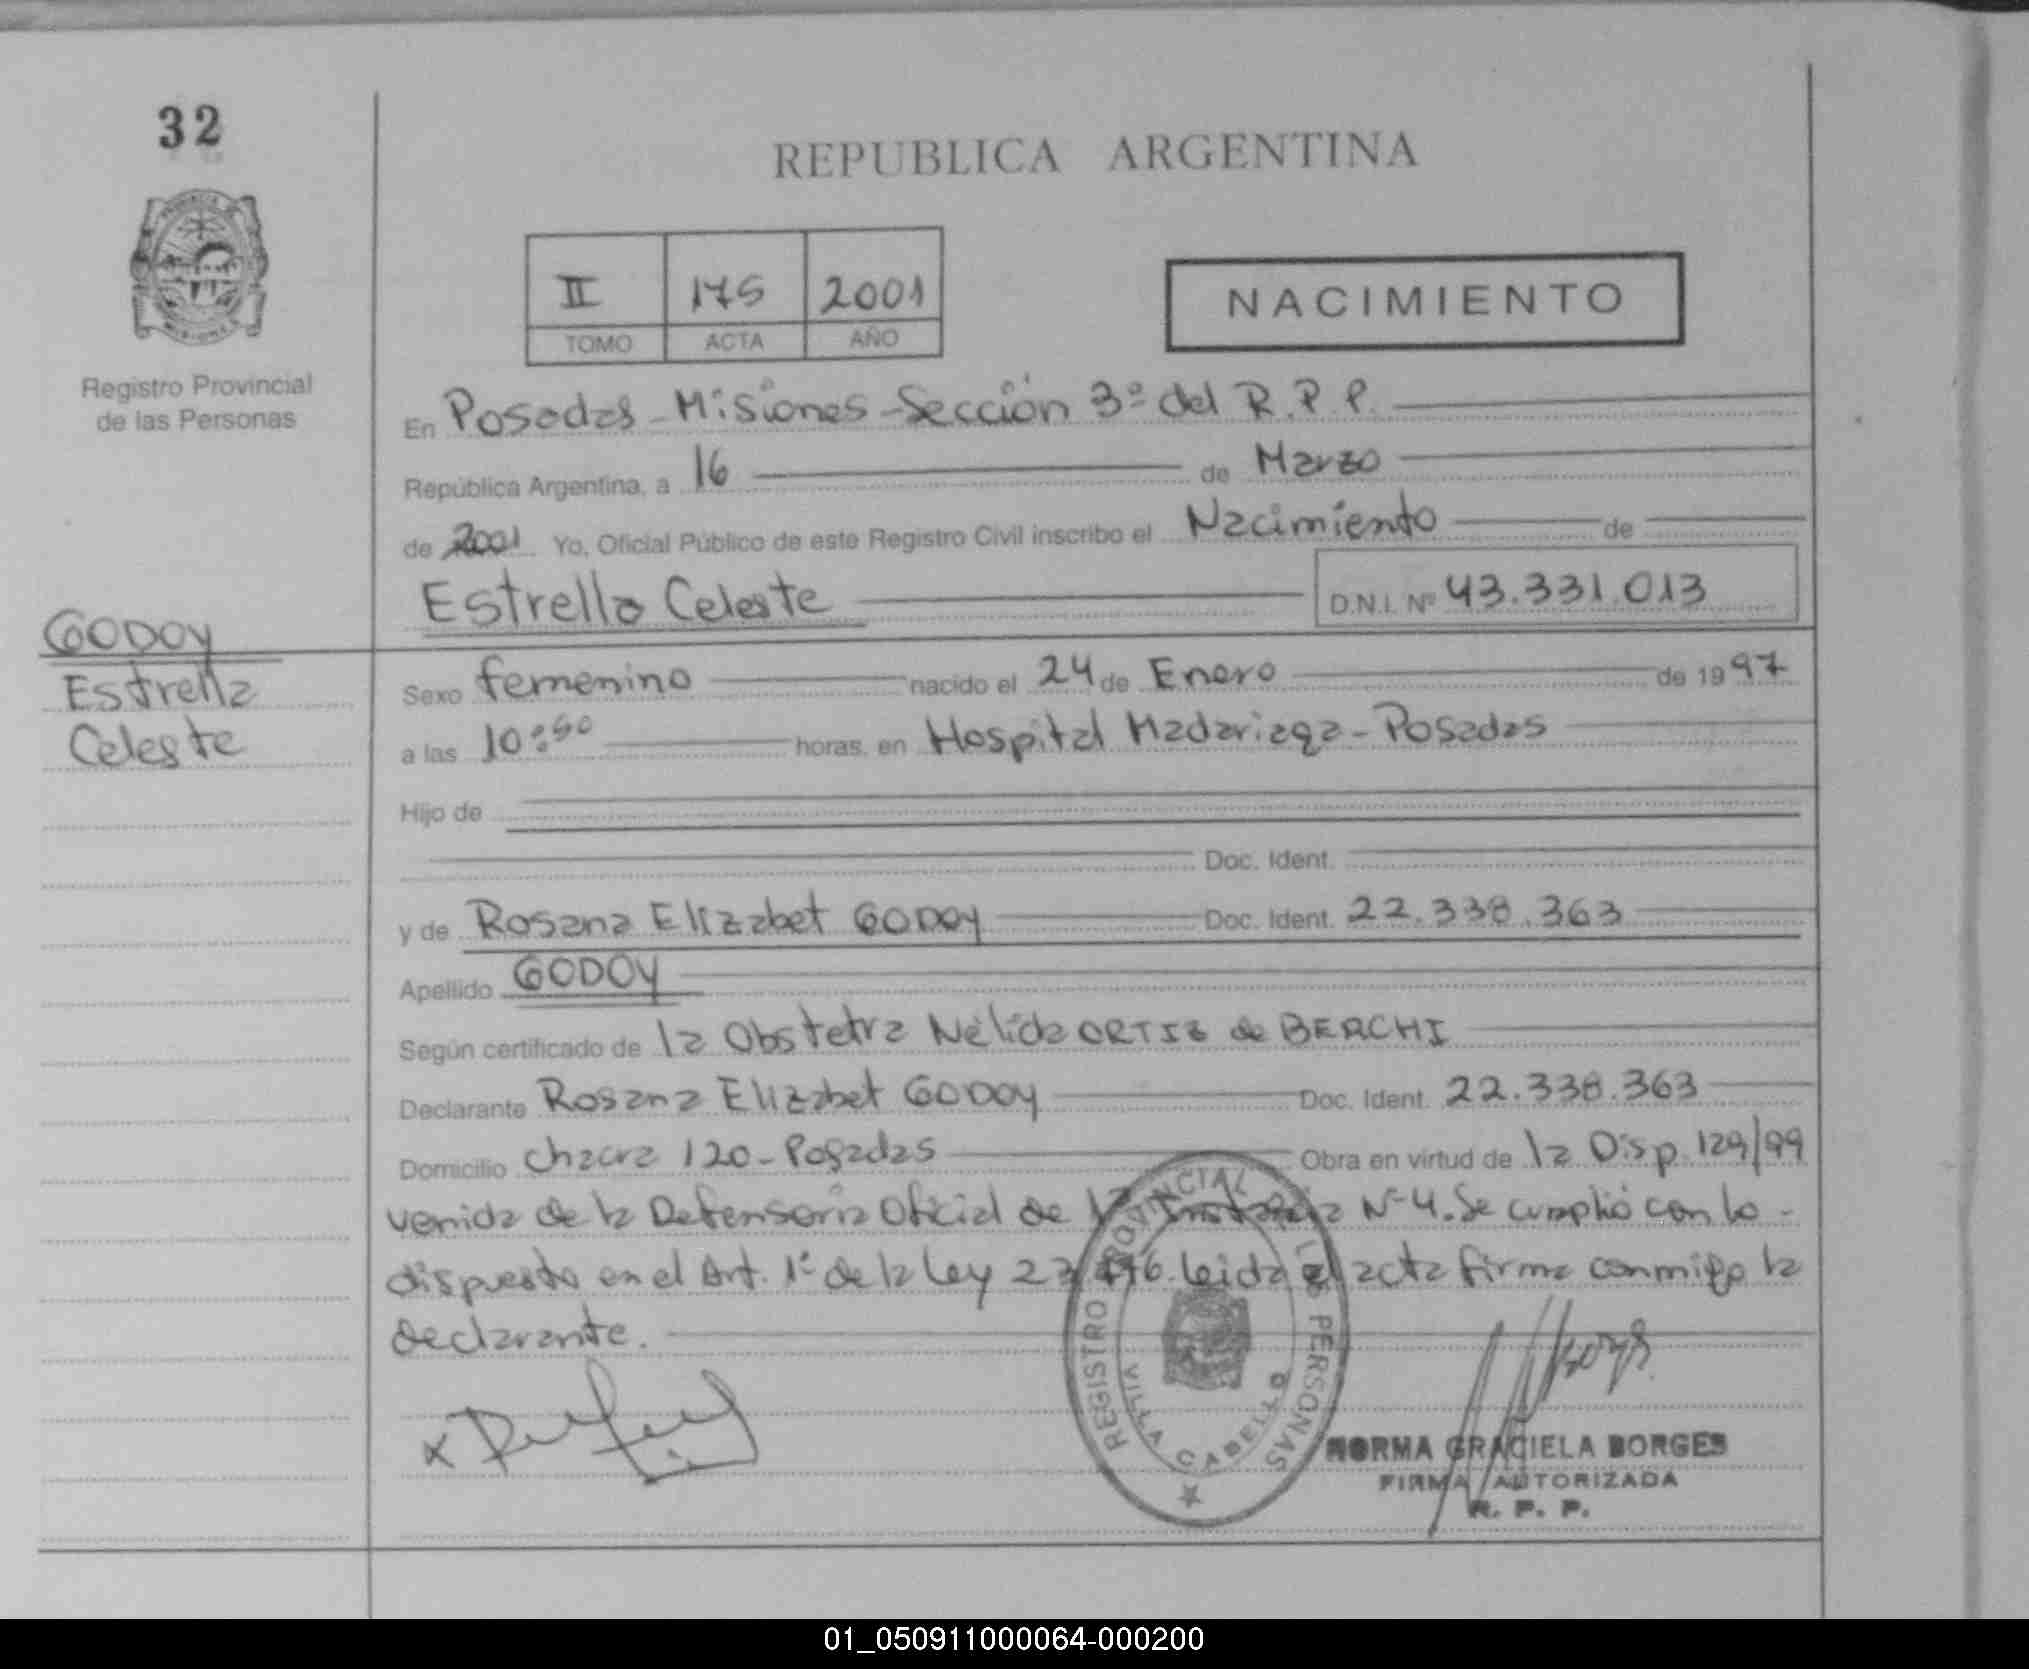 32
REPUBLICA ARGENTINA
II 175 2001
TOMO ACTA AÑO
NACIMIENTO
Registro Provincial
de las Personas
En Posadas - Misiones - Sección 3º del R.P.P.
República Argentina, a 16 de Marzo
de 2001 Yo, Oficial Público de este Registro Civil inscribo el Nacimiento de
Estrella Celeste D.N.I. Nº 43.331.013
GODOY
Estrella
Celeste
Sexo femenino nacido el 24 de Enero de 1997
a las 10:50 horas, en Hospital Madariaga - Posadas
Hijo de
Doc. Ident.
y de Rosana Elizabet GODOY Doc. Ident. 22.338.363
Apellido GODOY
Según certificado de la Obstetra Nélida ORTIZ de BERCHI
Declarante Rosana Elizabet GODOY Doc. Ident. 22.338.363
Domicilio Chacra 120 - Posadas Obra en virtud de la Disp. 129/99
venida de la Defensoria Oficial de Instancia Nº 4. Se cumplió con lo -
dispuesto en el Art. 1º de la Ley leida el acta firma conmigo la
declarante.
REGISTRO PROVINCIAL DE LAS PERSONAS
VILLA CABELLO
NORMA GRACIELA BORGES
FIRMA AUTORIZADA
R. P. P.
01_050911000064-000200